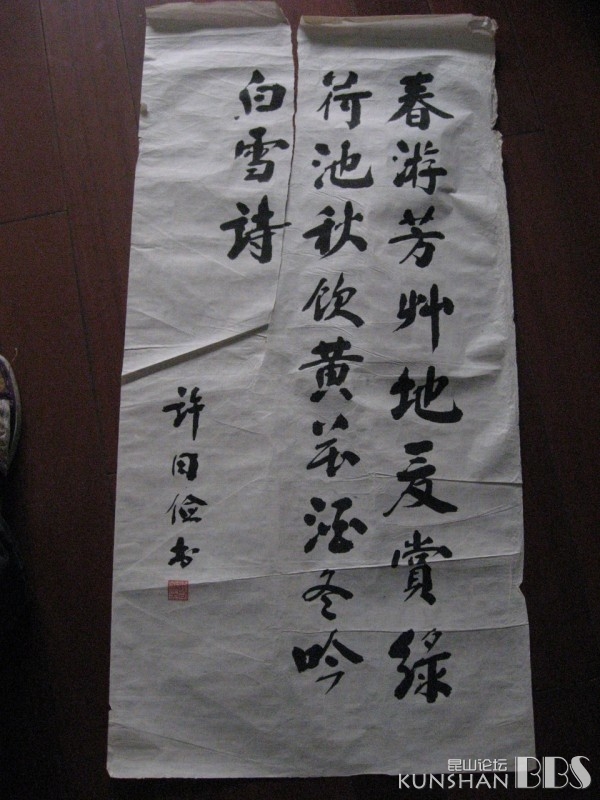 春游芳艸地夏賞綠
荷池秋飲黄花酒冬吟
白雪詩
許同俭书
昆山论坛
KUNSHAN BBS